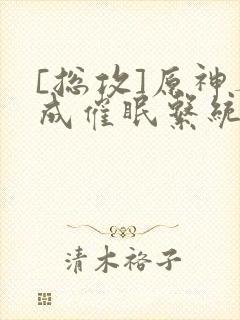 [总攻]原神
成催眠系统
清木裕子